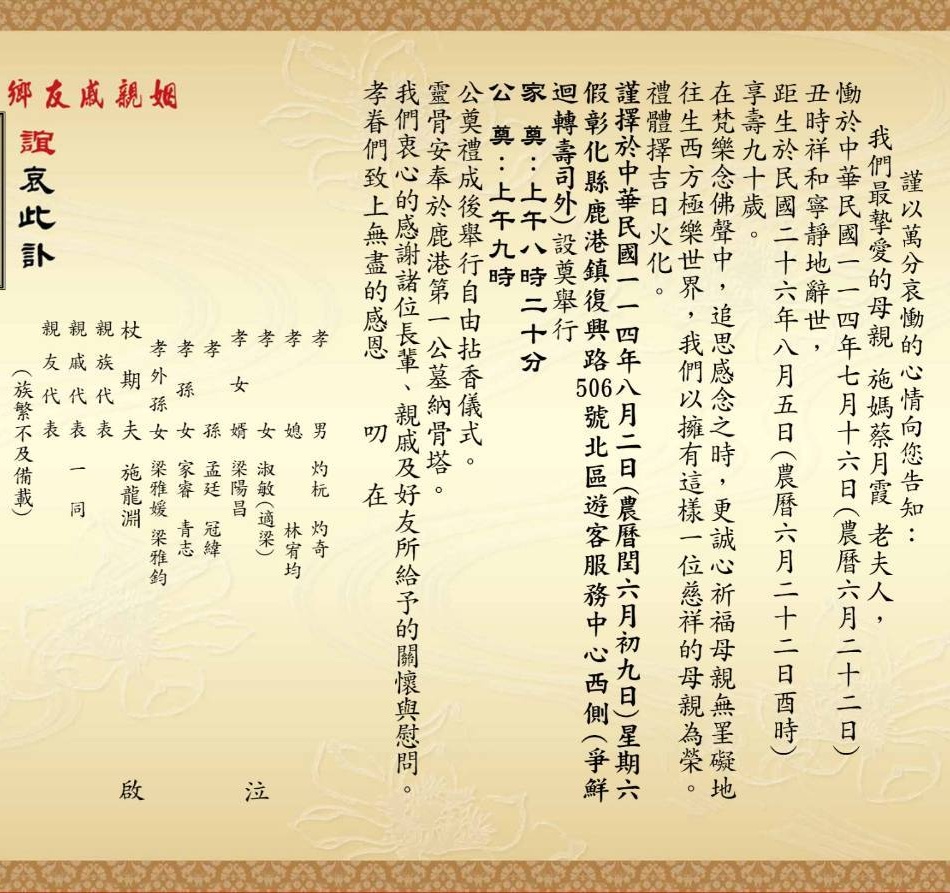 謹以萬分哀慟的心情向您告知：
我們最摯愛的母親 施媽蔡月霞 老夫人，
慟於中華民國一一四年七月十六日(農曆六月二十二日)
丑時祥和寧靜地辭世，
距生於民國二十六年八月五日(農曆六月二十二日酉時)
享壽九十歲。
在梵樂念佛聲中，追思感念之時，更誠心祈福母親無罣礙地
往生西方極樂世界，我們以擁有這樣一位慈祥的母親為榮。
禮體擇吉日火化。
謹擇於中華民國一一四年八月二日(農曆閏六月初九日)星期六
假彰化縣鹿港鎮復興路506號北區遊客服務中心西側(爭鮮
迴轉壽司外)設奠舉行
家 奠：上午八時二十分
公 奠：上午九時
公奠禮成後舉行自由拈香儀式。
靈骨安奉於鹿港第一公墓納骨塔。
我們衷心的感謝諸位長輩、親戚及好友所給予的關懷與慰問。
孝眷們致上無盡的感恩 叨 在
姻親戚友鄉
誼哀此訃
孝 男 灼杬 灼奇
孝 媳 林宥均
孝 女 淑敏(適梁)
孝 女 婿 梁陽昌
孝 孫 孟廷 冠緯
孝 孫 女 家睿 青志
孝外孫女 梁雅媛 梁雅鈞
杖 期 夫 施龍淵
親族代表
親戚代表 一 同
親友代表
(族繁不及備載)
泣
啟